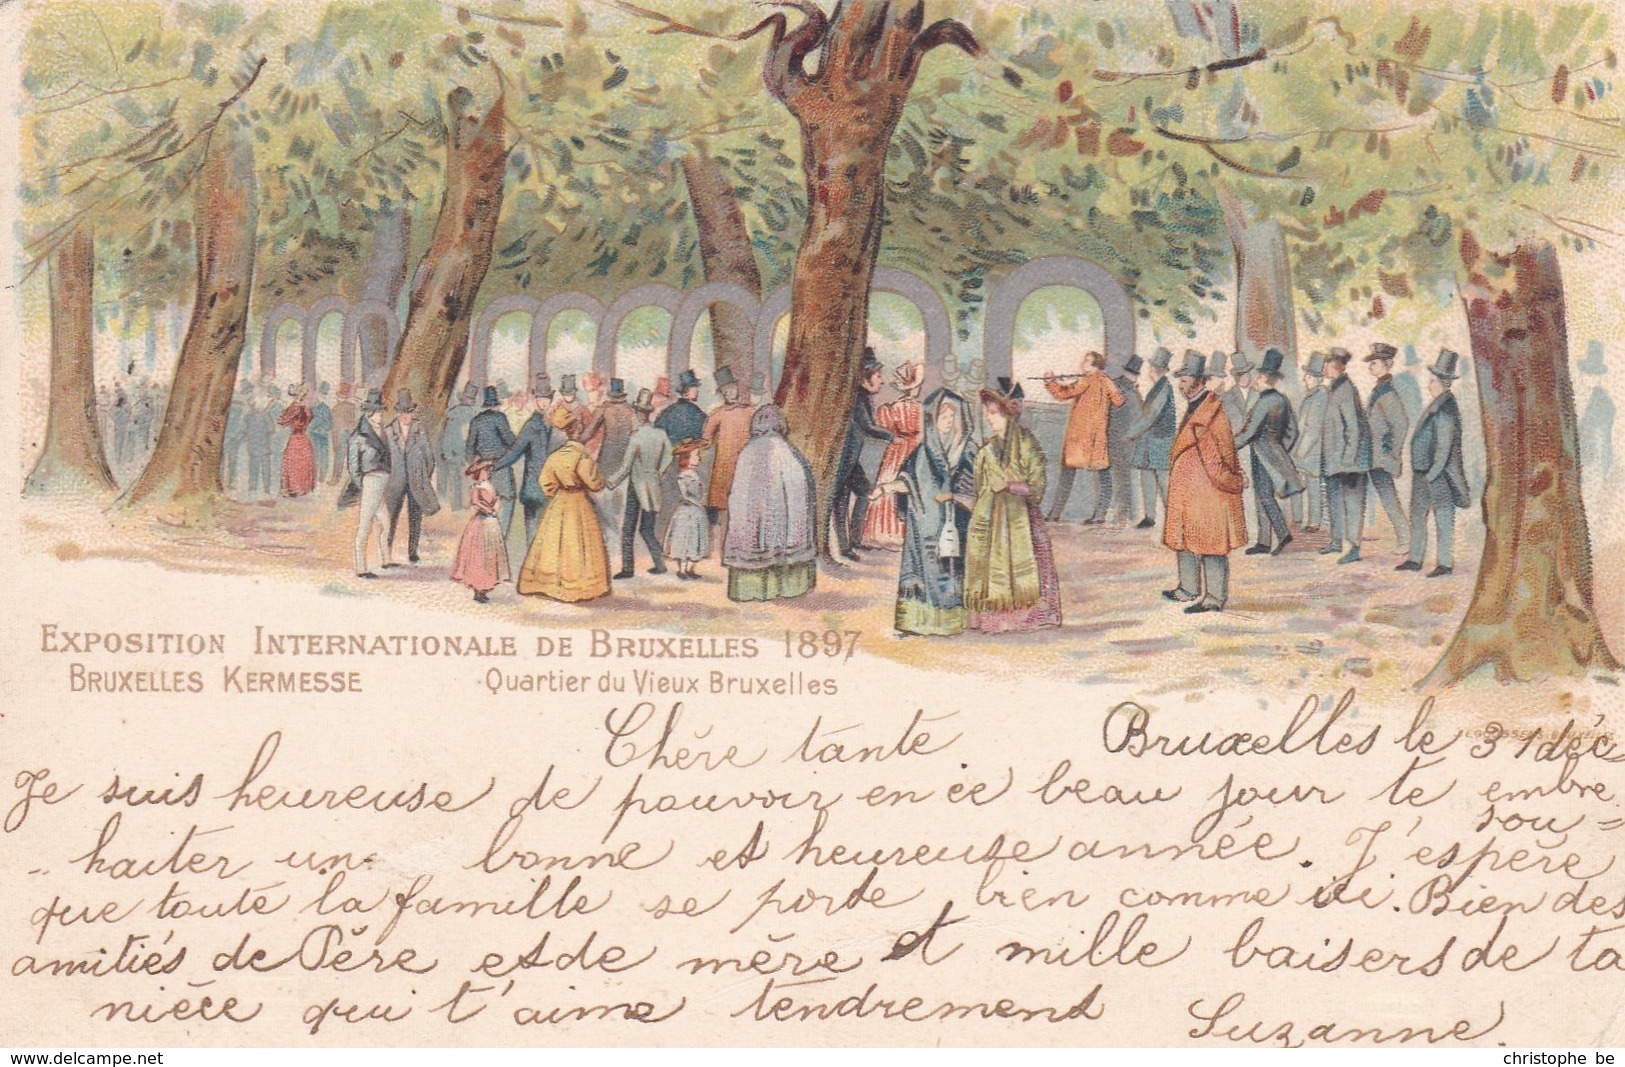 EXPOSITION INTERNATIONALE DE BRUXELLES 1897
BRUXELLES KERMESSE Quartier du Vieux Bruxelles
Chère tante Bruxelles le 31 déc
Je suis heureuse de pouvoir en ce beau jour te embre
sou=
haiter un bonne et heureuse année. J'espère
que toute la famille se porte bien comme ici. Bien des
amitiés de Père et de mère et mille baisers de ta
nièce qui t'aime tendrement
Suzanne.
www.delcampe.net christophe be